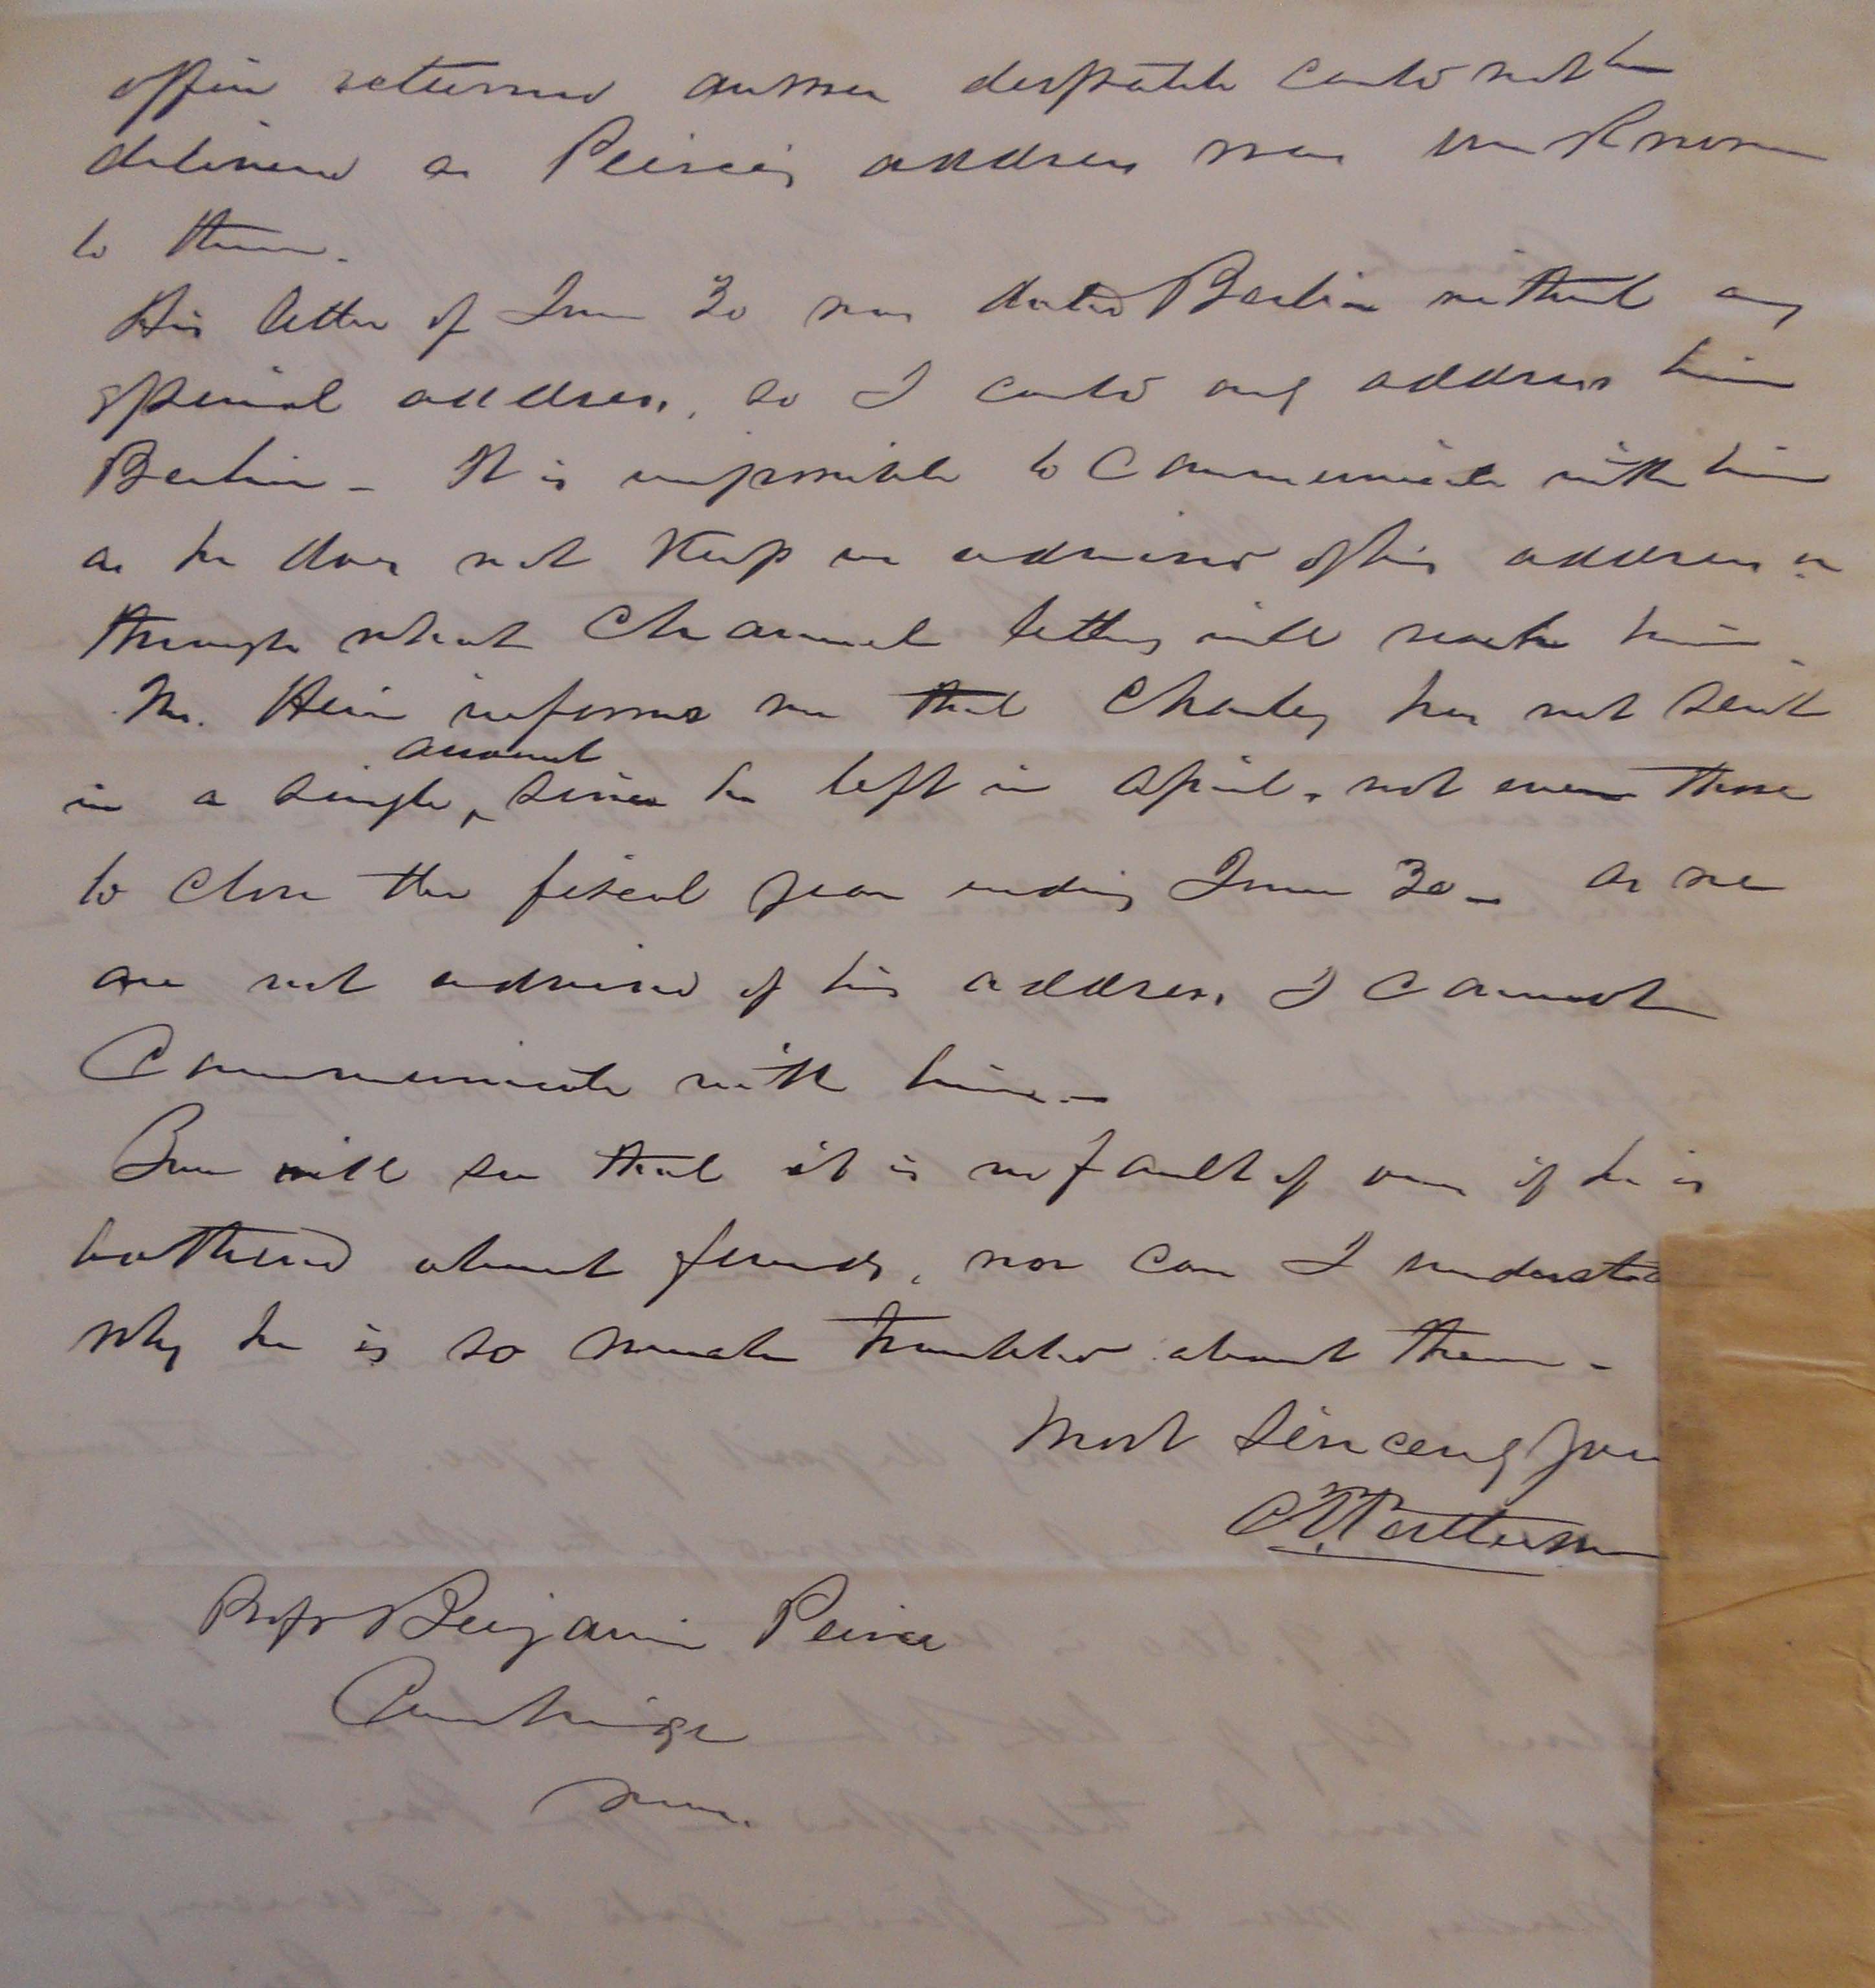 office returned answer despatch could not be
delivered as Peirce's address was unknown
to them.
His letter of June 30 was dated Berlin without any
special address, so I could only address him
Berlin - It is impossible to communicate with him
as he does not keep us advised of his address or
through what channel letters will reach him.
Mr. Hein informs me that Charley has not sent
account
in a single ‸ since he left in April, not even those
to close the fiscal year ending June 30 - As we
are not advised of his address I cannot
communicate with him. -
You will see that it is no fault of ours if he is
bothered about funds, nor can I understa
why he is so much troubled about them -
Most sincerely you
C. P. Patterson
Profr Benjamin Peirce
Cambridge
Mass.